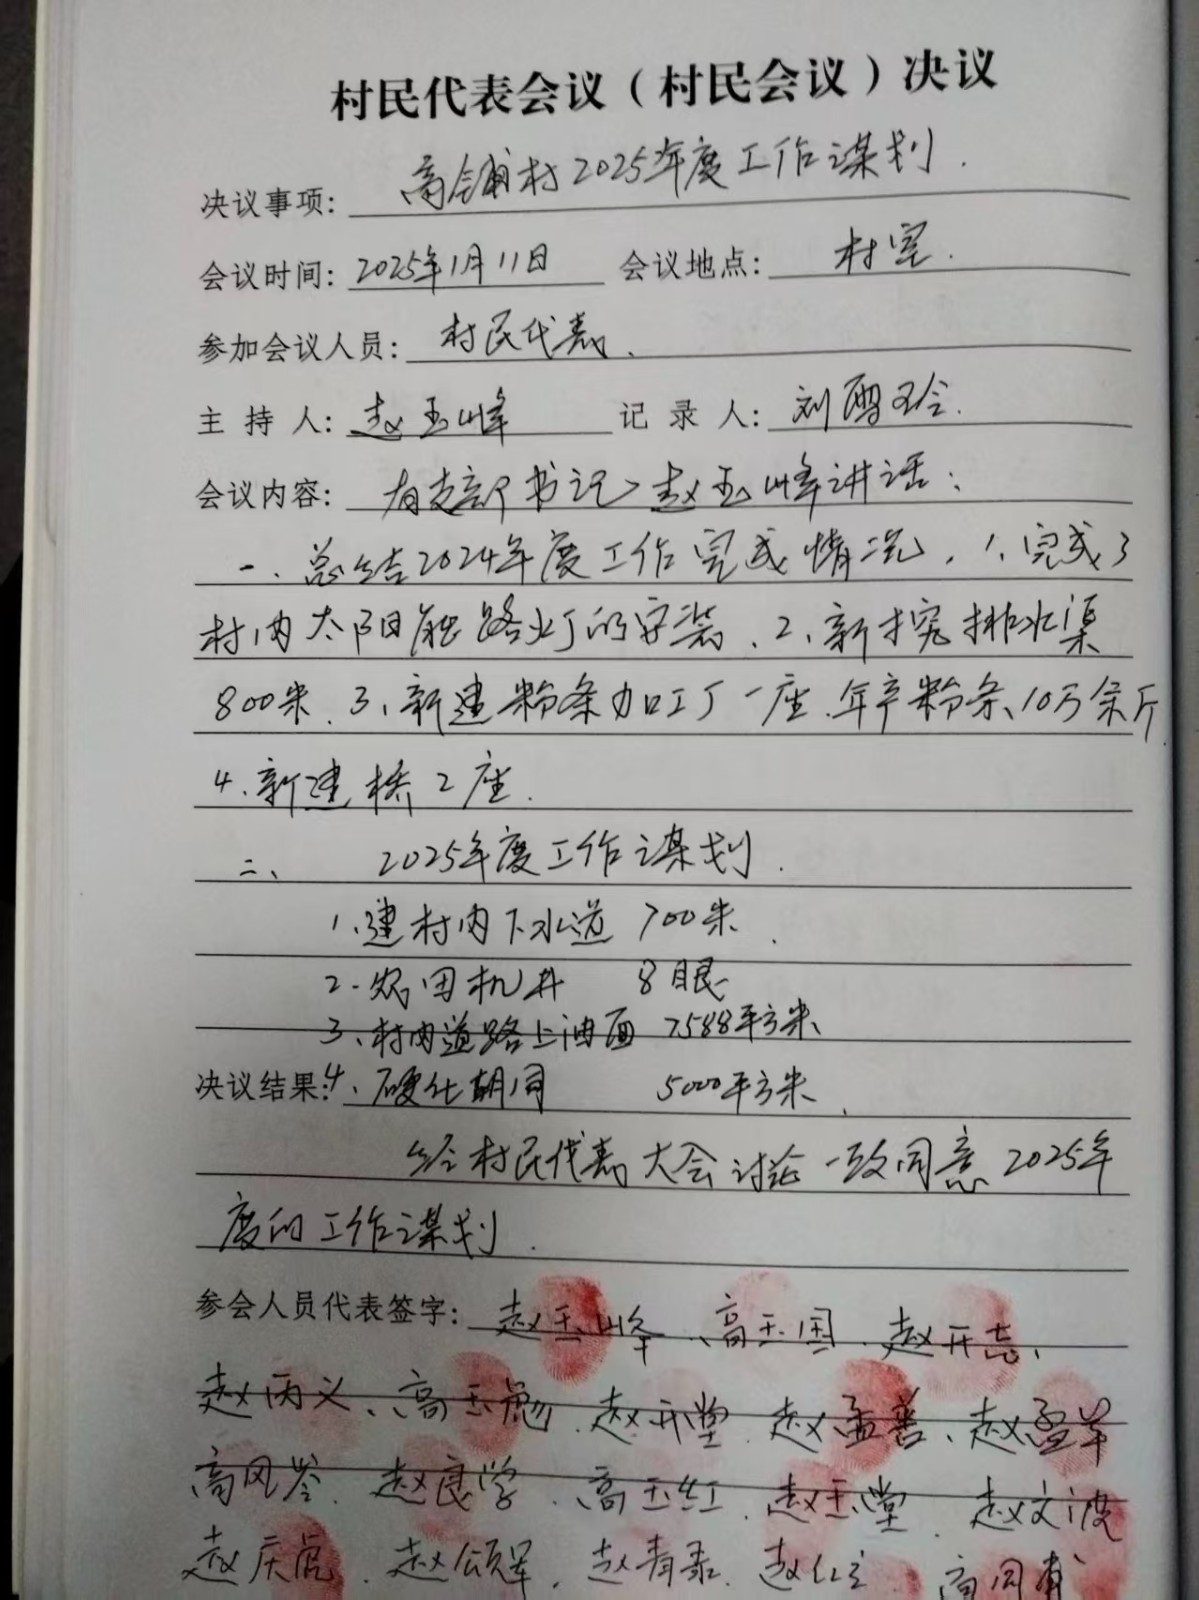 村民代表会议（村民会议）决议
决议事项： 高铺村2025年度工作谋划.
会议时间：2025年1月11日 会议地点： 村室.
参加会议人员： 村民代表.
主 持 人：赵玉峰 记 录 人：刘雪玲.
会议内容： 有支部书记赵玉峰讲话：
一、总结2024年度工作完成情况，1、完成了
村内太阳能路灯的安装、2、新挖排水渠
800米、3、新建粉条加工厂一座、年产粉条、10万余斤
4、新建桥2座.
二、 2025年度工作谋划.
1、建村内下水道 700米.
2、农田机井 8眼
3、村内道路上油面 7588平方米
决议结果：4、硬化胡同 5000平方米.
经村民代表大会讨论一致同意2025年
度的工作谋划.
参会人员代表签字： 赵玉峰、高玉国、赵开志、
赵丙义、高玉勉、赵开堂、赵孟善、赵
高风岑、赵良学、高玉红、赵玉堂、赵文波
赵庆虎、赵颂军、赵青录、赵仁 高同